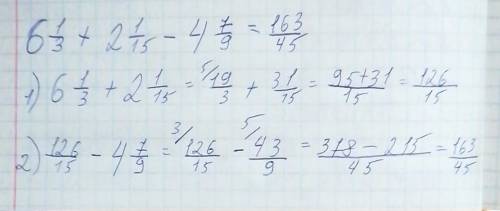 6 1/3 + 2 1/15 - 4 7/9 = 163/45
1) 6 1/3 + 2 1/15 = 5/ 19/3 + 31/15 = 95+31/15 = 126/15
2) 126/15 - 4 7/9 = 3/ 126/15 - 5/ 43/9 = 378 - 215/45 = 163/45